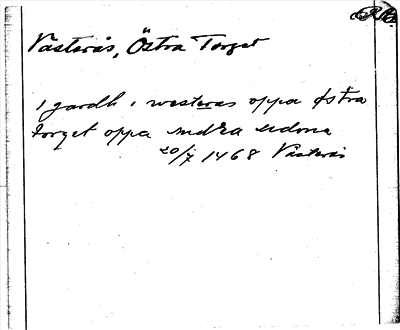 Västerås, Östra Torget
1 gardh i westeras oppa østra
torget oppa nordra sidona
20/7 1468 Västerås